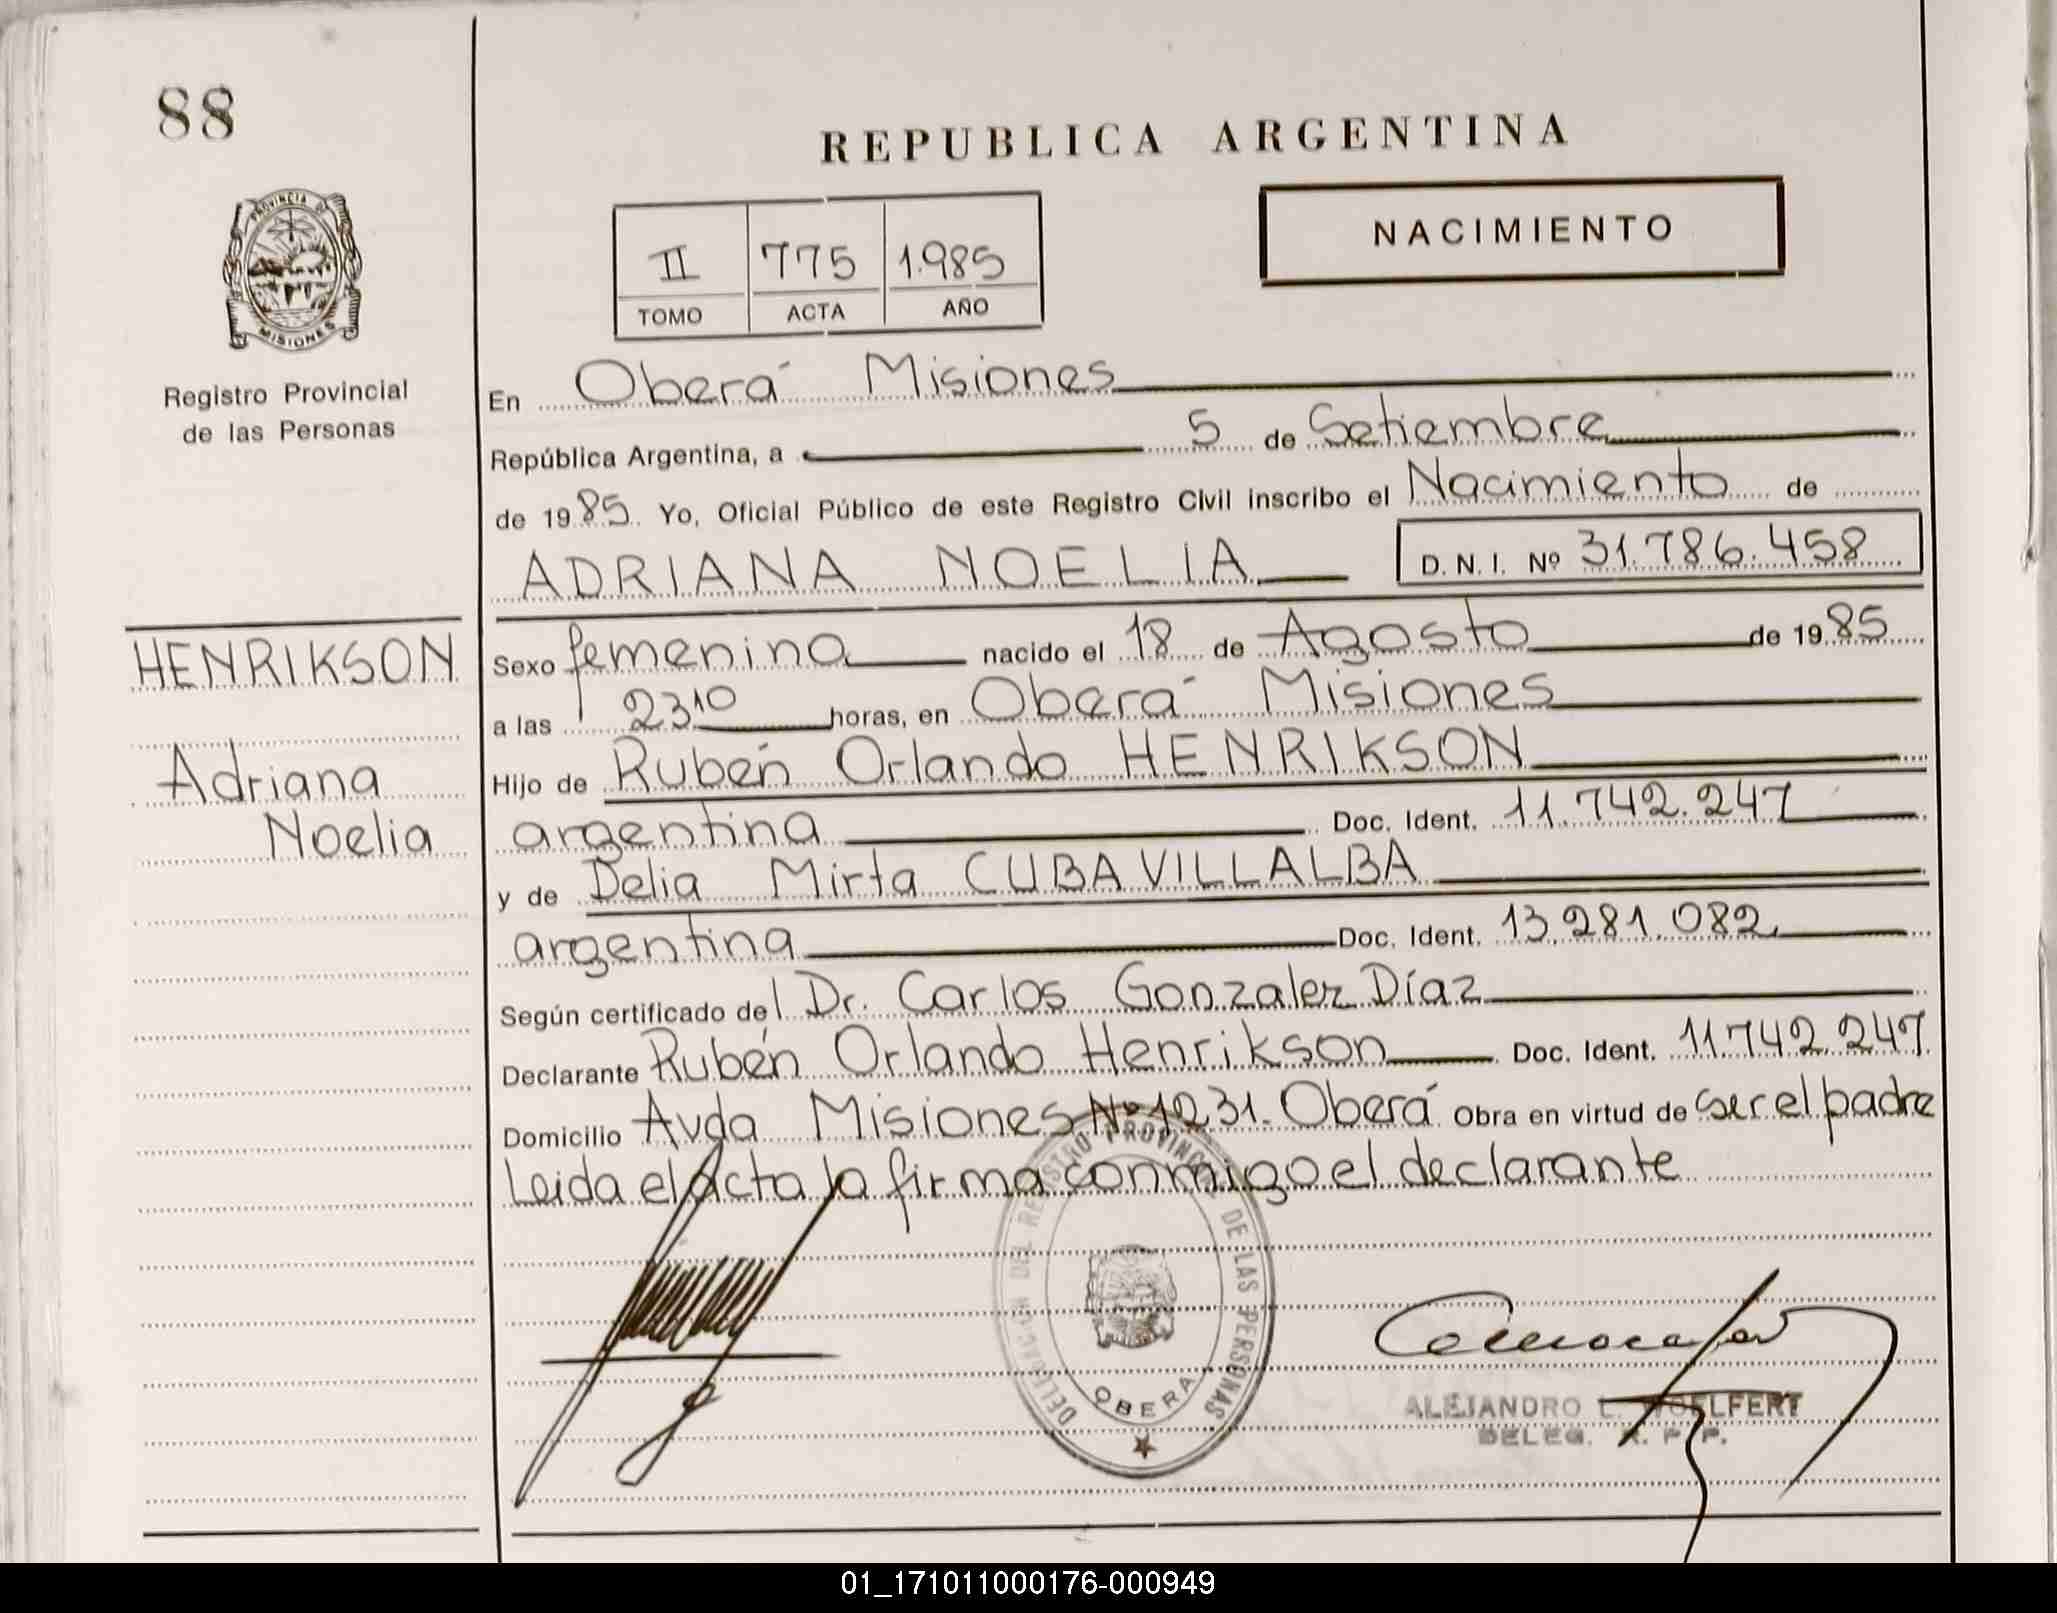 88
REPUBLICA ARGENTINA
PROVINCIA DE
MISIONES
Registro Provincial
de las Personas
II 775 1.985
TOMO ACTA AÑO
NACIMIENTO
En Oberá Misiones
República Argentina, a 5 de Setiembre
de 1985. Yo, Oficial Público de este Registro Civil inscribo el Nacimiento de
ADRIANA NOELIA D.N.I. Nº 31.786.458
HENRIKSON
Adriana
Noelia
Sexo femenino nacido el 18 de Agosto de 1985
a las 23¹⁰ horas, en Oberá Misiones
Hijo de Rubén Orlando HENRIKSON
argentina Doc. Ident. 11.742.247
y de Delia Mirta CUBA VILLALBA
argentina Doc. Ident. 13.281.082
Según certificado del Dr. Carlos Gonzalez Díaz
Declarante Rubén Orlando Henrikson Doc. Ident. 11.742.247
Domicilio Avda Misiones Nº 1231. Oberá Obra en virtud de ser el padre
Leida el acta la firma conmigo el declarante
DELEGACION DEL REGISTRO PROVINCIAL DE LAS PERSONAS
OBERA
ALEJANDRO L. WOELFERT
DELEG. R. P. P.
01_171011000176-000949